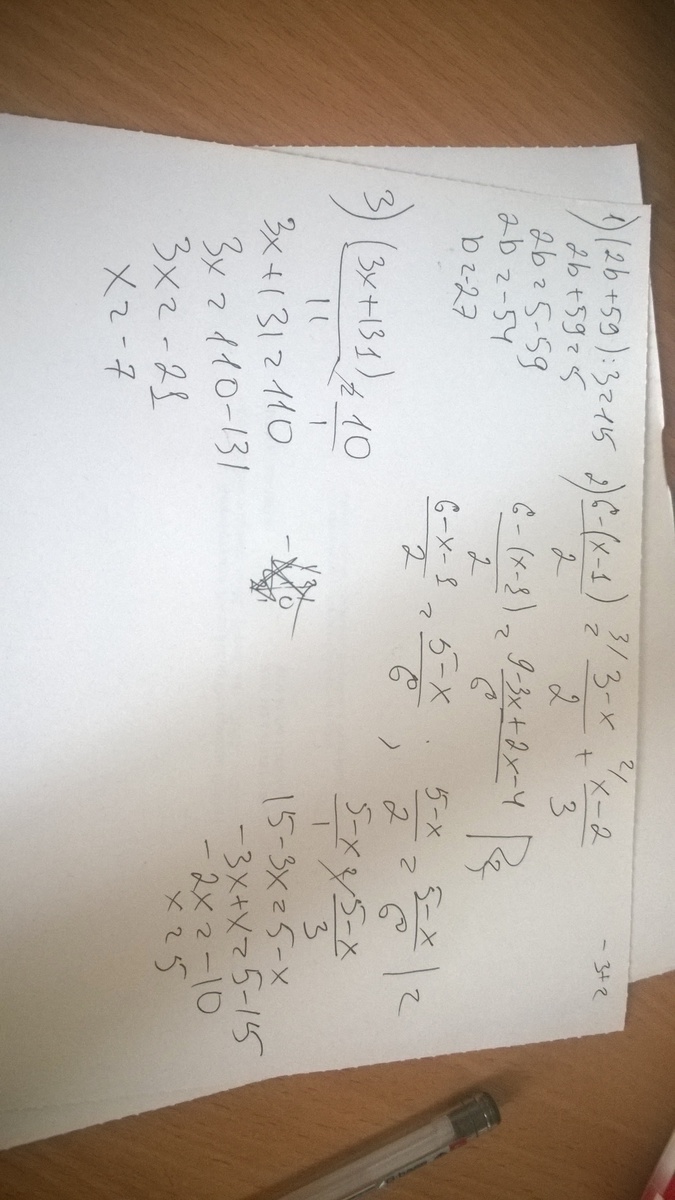 1) (2b+59):3=15
2b+59=5
2b=5-59
2b=-54
b=-27
2) 6-(x-1)/2 = 3/ 3-x/2 + 2/ x-2/3
6-(x-1)/2 = 9-3x+2x-4/6
6-x-1/2 = 5-x/6 ; 5-x/2 = 5-x/6 |2
5-x/1 = 5-x/3
15-3x=5-x
-3x+x=5-15
-2x=-10
x=5
3) (3x+131)/11 = 10/1
3x+131=110
3x=110-131
3x=-21
x=-7
-3+2